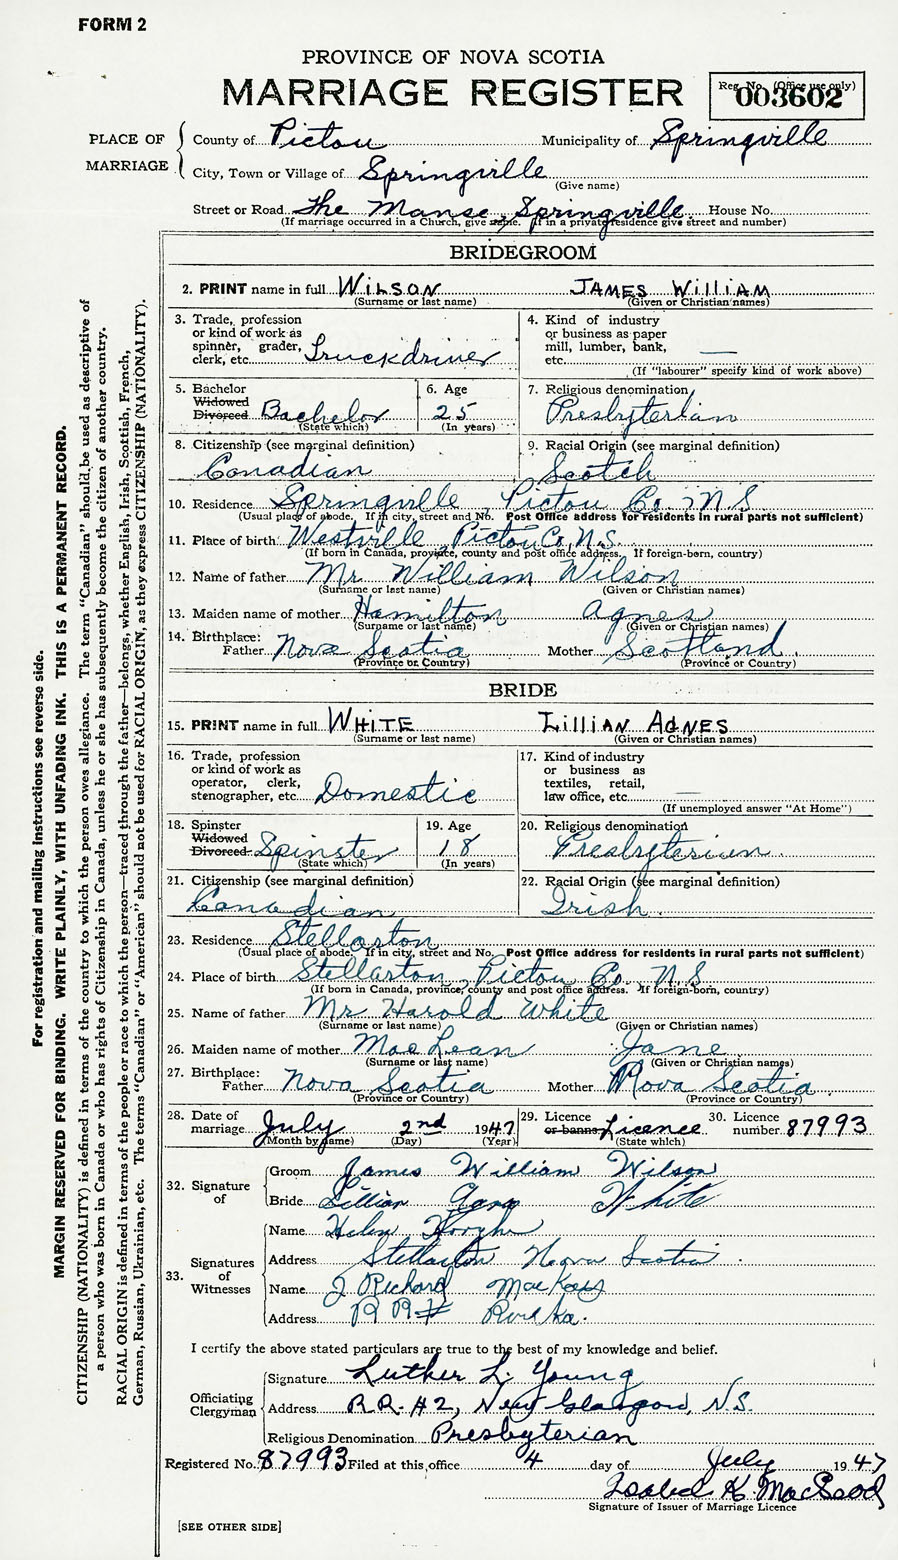 FORM 2
PROVINCE OF NOVA SCOTIA
MARRIAGE REGISTER
Reg. No. (Office use only)
003602
PLACE OF MARRIAGE
County of Pictou Municipality of Springville
City, Town or Village of Springville
(Give name)
Street or Road The Manse, Springville. House No.
(If marriage occurred in a Church, give name. If in a private residence give street and number)
BRIDEGROOM
2. PRINT name in full WILSON JAMES WILLIAM
(Surname or last name) (Given or Christian names)
3. Trade, profession or kind of work as spinner, grader, clerk, etc. Truckdriver
4. Kind of industry or business as paper mill, lumber, bank, etc. —
(If "labourer" specify kind of work above)
5. Bachelor Widowed Divorced Bachelor
(State which)
6. Age 25
(In years)
7. Religious denomination Presbyterian
8. Citizenship (see marginal definition) Canadian
9. Racial Origin (see marginal definition) Scotch
10. Residence Springville Pictou Co. N S
(Usual place of abode. If in city, street and No. Post Office address for residents in rural parts not sufficient)
11. Place of birth Westville Pictou Co. N.S.
(If born in Canada, province, county and post office address. If foreign-born, country)
12. Name of father Mr William Wilson
(Surname or last name) (Given or Christian names)
13. Maiden name of mother Hamilton Agnes
(Surname or last name) (Given or Christian names)
14. Birthplace: Father Nova Scotia Mother Scotland.
(Province or Country) (Province or Country)
BRIDE
15. PRINT name in full WHITE LILLIAN AGNES
(Surname or last name) (Given or Christian names)
16. Trade, profession or kind of work as operator, clerk, stenographer, etc. Domestic
17. Kind of industry or business as textiles, retail, law office, etc. —
(If unemployed answer "At Home")
18. Spinster Widowed Divorced Spinster
(State which)
19. Age 18
(In years)
20. Religious denomination Presbyterian.
21. Citizenship (see marginal definition) Canadian
22. Racial Origin (see marginal definition) Irish.
23. Residence Stellarton
(Usual place of abode. If in city, street and No. Post Office address for residents in rural parts not sufficient)
24. Place of birth Stellarton, Pictou Co. N.S
(If born in Canada, province, county and post office address. If foreign-born, country)
25. Name of father Mr Harold White
(Surname or last name) (Given or Christian names)
26. Maiden name of mother MacLean Jane
(Surname or last name) (Given or Christian names)
27. Birthplace: Father Nova Scotia Mother Nova Scotia
(Province or Country) (Province or Country)
28. Date of marriage July 2nd 1947
(Month by name) (Day) (Year)
29. Licence or banns Licence
(State which)
30. Licence number 87993
32. Signature of
Groom James William Wilson
Bride Lillian White
33. Signatures of Witnesses
Name Helen
Address Stellarton Nova Scotia.
Name J Richard MacKay
Address R R#
I certify the above stated particulars are true to the best of my knowledge and belief.
Officiating Clergyman
Signature Luther L. Young
Address R.R. #2, New Glasgow, N.S.
Religious Denomination Presbyterian
Registered No. 87993 Filed at this office 4 day of July 1947
Isabel K. MacLeod
Signature of Issuer of Marriage Licence
[SEE OTHER SIDE]
For registration and mailing instructions see reverse side.
MARGIN RESERVED FOR BINDING. WRITE PLAINLY, WITH UNFADING INK. THIS IS A PERMANENT RECORD.
CITIZENSHIP (NATIONALITY) is defined in terms of the country to which the person owes allegiance. The term "Canadian" should be used as descriptive of
a person who was born in Canada or who has rights of Citizenship in Canada, unless he or she has subsequently become the citizen of another country.
RACIAL ORIGIN is defined in terms of the people or race to which the person—traced through the father—belongs, whether English, Irish, Scottish, French,
German, Russian, Ukrainian, etc. The terms "Canadian" or "American" should not be used for RACIAL ORIGIN, as they express CITIZENSHIP (NATIONALITY).